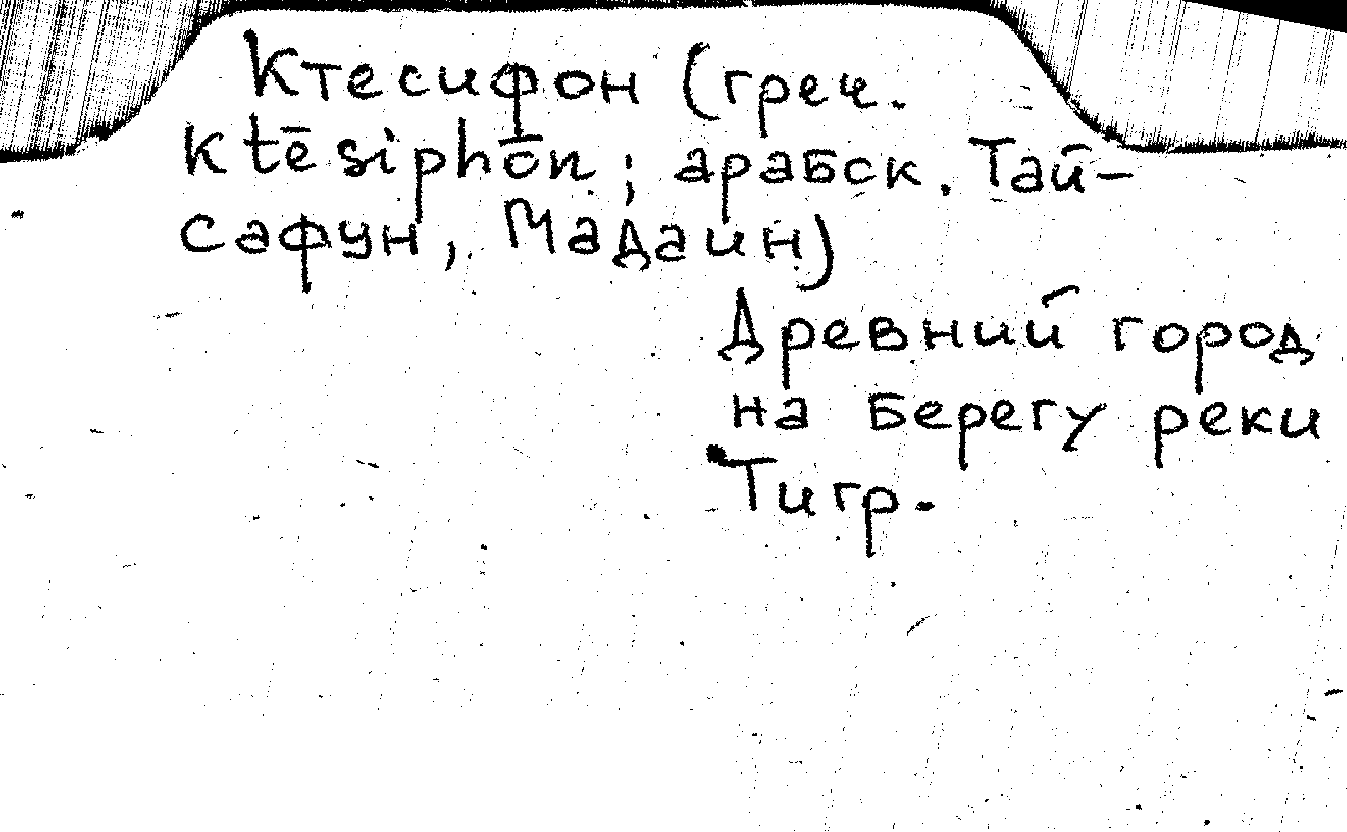 Ктесифон (греч.
Ktēsiphōn; арабск. Тай-
сафун, Мадаин)
Древний город
на берегу реки
Тигр.